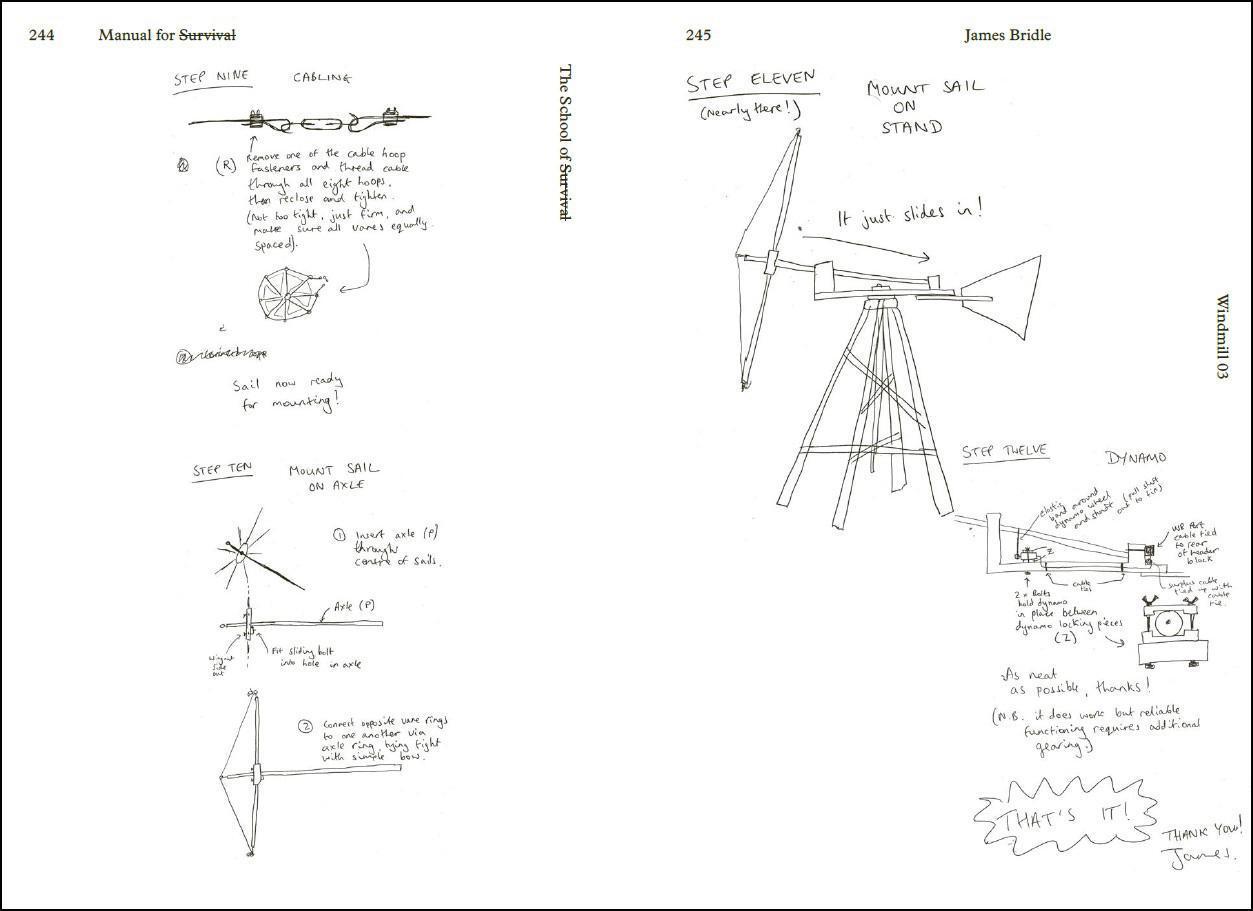 244
Manual for Survival
The School of Survival
STEP NINE
CABLING
(R)
Remove one of the cable hoop
fasteners and thread cable
through all eight hoops.
then reclose and tighten.
(Not too tight, just firm, and
make sure all vanes equally
spaced).
Sail now ready
for mounting!
STEP TEN
MOUNT SAIL
ON AXLE
1
Insert axle (P)
through
centre of sails.
Axle (P)
Wingnut
side
out
Fit sliding bolt
into hole in axle
2
Connect opposite vane rings
to one another via
axle ring, tying tight
with simple bow.
245
James Bridle
Windmill 03
STEP ELEVEN
(Nearly there!)
MOUNT SAIL
ON
STAND
It just slides in!
STEP TWELVE
DYNAMO
elastic
band around
dynamo wheel
and shaft
(pull shaft
out to fix)
Z
cable tied
to rear
of header
block
cable
ties
surplus cable
tied up with
cable
tie.
2 x Bolts
hold dynamo
in place between
dynamo locking pieces
(Z)
As neat
as possible, thanks!
(N.B. it does work but reliable
functioning requires additional
gearing.)
THAT'S IT!
THANK YOU!
James.